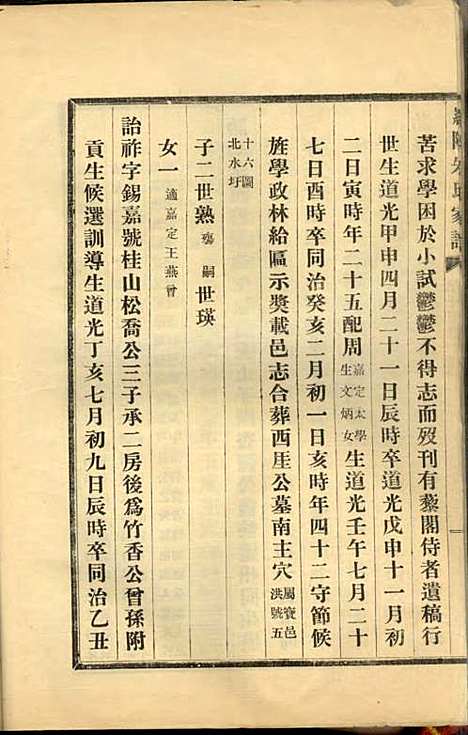 苦求學困於小試鬱鬱不得志而歿刊有藜閣侍者遺稿行
世生道光甲申四月二十一日辰時卒道光戊申十一月初
二日寅時年二十五配周嘉定太學生文炳女生道光壬午七月二十
七日酉時卒同治癸亥二月初一日亥時年四十二守節候
旌學政林給區示奬載邑志合葬西厓公墓南主穴屬寶邑洪號五
十六圖北水圩
子二世熟殤嗣世瑛
女一適嘉定王燕曾
詒祚字錫嘉號桂山松喬公三子承二房後爲竹香公曾孫附
貢生候選訓導生道光丁亥七月初九日辰時卒同治乙丑